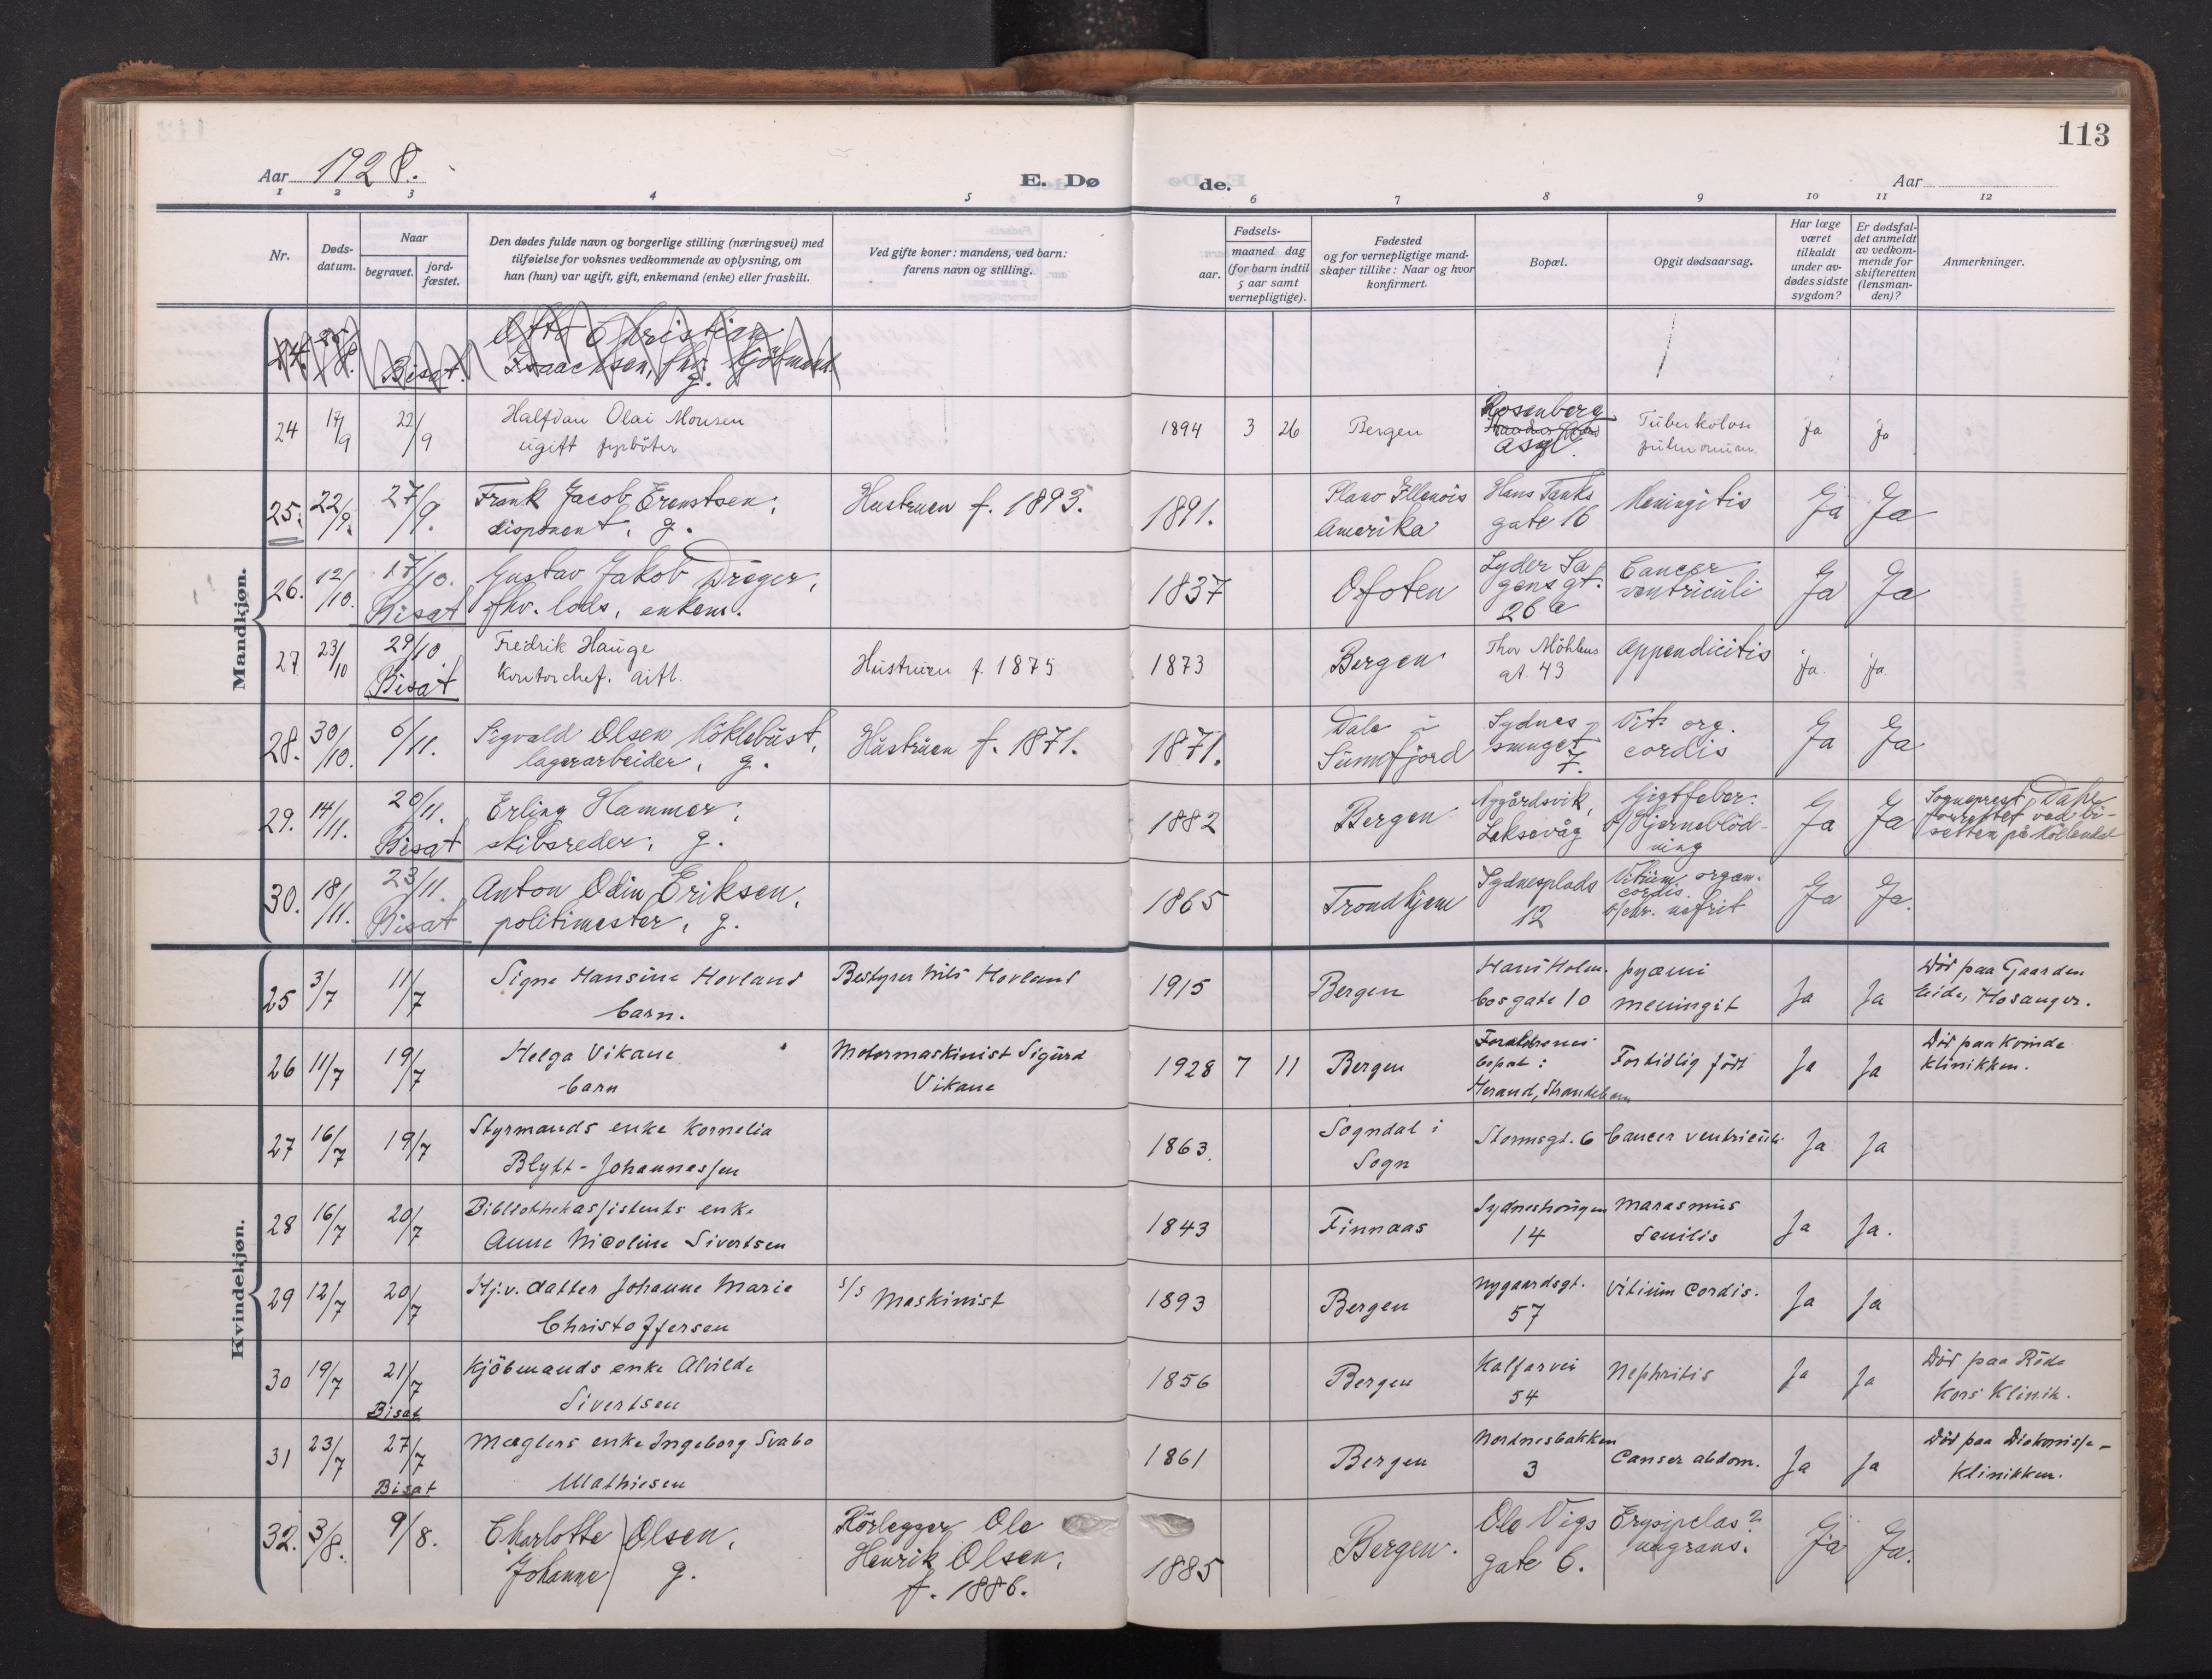 113
Aar 1928.
E. Dø
de.
Aar
1 2 3 4 5 6 7 8 9 10 11 12
Nr.
Døds-
datum.
Naar
begravet.
jord-
fæstet.
Den dødes fulde navn og borgerlige stilling (næringsvei) med
tilføielse for voksnes vedkommende av oplysning, om
han (hun) var ugift, gift, enkemand (enke) eller fraskilt.
Ved gifte koner: mandens, ved barn:
farens navn og stilling.
Fødsels-
aar.
maaned dag
(for barn indtil
5 aar samt
vernepligtige).
Fødested
og for vernepligtige mand-
skaper tillike: Naar og hvor
konfirmert.
Bopæl.
Opgit dødsaarsag.
Har læge
været
tilkaldt
under av-
dødes sidste
sygdom?
Er dødsfal-
det anmeldt
av vedkom-
mende for
skifteretten
(lensman-
den)?
Anmerkninger.
Mandkjøn.
24. 25/8. Bisat. Otto Christian
Isaachsen, fhv. kjøbmand.
g.
24 17/9 22/9 Halfdan Olai Monsen
ugift fyrbøter
1894 3 26 Bergen
Rosenberg
asyl.
Tuberkolose
pulmonum
ja ja
25. 22/9. 27/9. Frank Jacob Erenstsen,
disponent, g.
Hustruen f. 1893.
1891.
Plano Illenois
Amerika
Hans Tanks
gate 16
Meningitis
Ja Ja
26. 12/10. 17/10. Bisat
Gustav Jakob Dreyer,
fhv. lods, enkem.
1837
Ofoten
Lyder Sa
gens gt.
26 a
Cancer
ventriculi
Ja Ja
27 23/10 29/10 Bisat
Fredrik Hauge
Kontorchef. gift.
Hustruen f. 1875
1873
Bergen
Thor Möhlens
gt. 43
Appendicitis
ja. ja
28. 30/10. 6/11. Sigvald Olsen Köklebust,
lagerarbeider, g.
Hustruen f. 1871.
1871.
Dale i
Sunnfjord
Sydnes
smuget
7.
Vit. org.
cordis
Ja Ja
29. 14/11. 20/11. Bisat
Erling Hammer,
skibsreder, g.
1882
Bergen
Nygårdsvik,
Laksevåg
Gigtfeber.
Hjerneblöd-
ning
Ja Ja
Sogneprest Dahl
forrettet ved bi-
setten på Möllendal
30. 18/11. 23/11. Bisat
Anton Odin Eriksen,
politimester, g.
1865
Trondhjem
Sydnesplads
12
Vitium organ.
cordis
chr. nefrit
Ja Ja.
Kvindekjøn.
25 3/7 11/7 Signe Hansine Hovland
barn.
Bestyrer Nils Hovland
1915
Bergen
Hans Holm-
boesgate 10
pyæmi
meningit
Ja Ja
Död paa Gaarden
Eide, Hosanger.
26 11/7 19/7 Helga Vikane
barn
Motormaskinist Sigurd
Vikane
1928 7 11 Bergen
Forældrenes
bopæl:
Herand, Strandebarm
For tidlig født
Ja Ja
Död paa Kvinde
klinikken.
27 16/7 19/7 Styrmands enke Kornelia
Blytt-Johannessen
1863.
Sogndal i
Sogn
Stormsgt. 6
Cancer ventriculi
Ja Ja
28 16/7 20/7 Bibliothekassistents enke
Anne Nicoline Sivertsen
1843
Finnaas
Sydneshougen
14
Marasmus
Senilis
Ja Ja.
29 12/7 20/7 Hj.v. datter Johanne Marie
Christoffersen
s/s Maskinist
1893
Bergen
Nygaardsgt.
57
Vitium Cordis.
Ja Ja
30 19/7 21/7 Bisat
Kjöbmands enke Alvilde
Sivertsen
1856
Bergen
Kalfarvei
54
Nephritis
Ja Ja
Död paa Röde
Kors Klinik.
31 23/7 27/7 Bisat
Mæglers enke Ingeborg Svabo
Mathiesen
1861
Bergen
Nordnesbakken
3
Canser abdom.
Ja Ja
Död paa Diakonisse-
Klinikken.
32. 3/8. 9/8. Charlotte Olsen,
Johanne g.
Rörlegger Ole
Henrik Olsen,
f. 1886.
1885
Bergen.
Ole Vigs
gate 6.
Erysipelas
migrans.
Ja Ja.